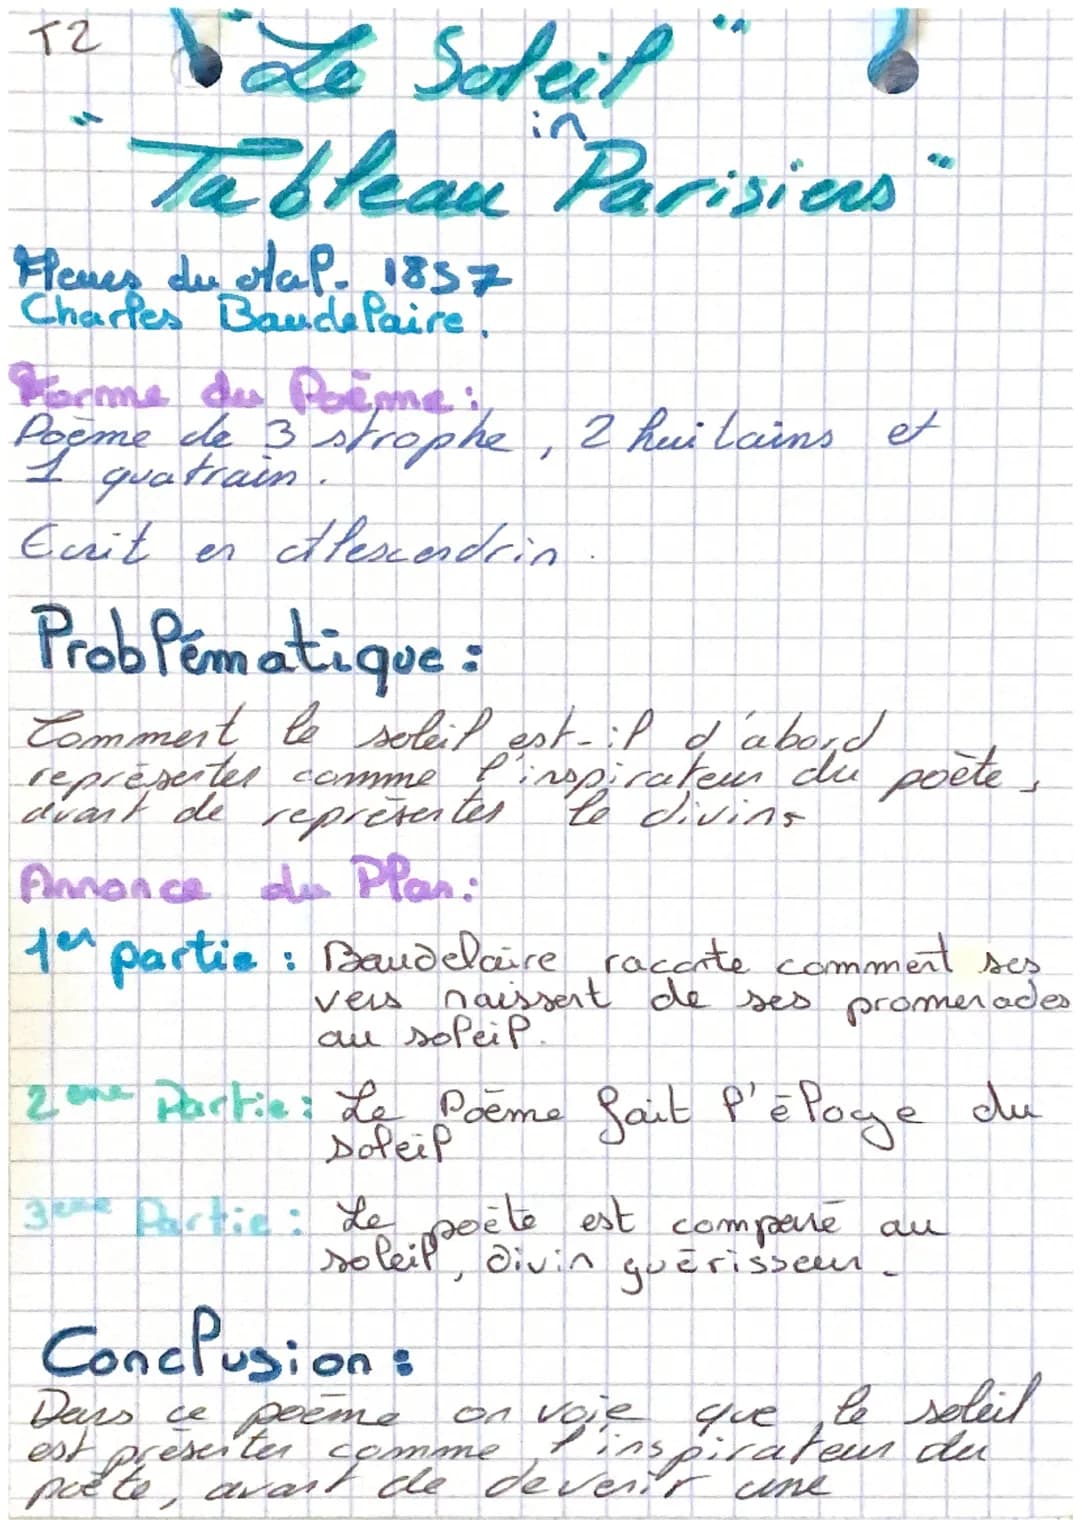 T2
"Le Soleil"
in
"Tableau Parisiens"
Fleurs du Mal. 1857
Charles Baudelaire.
Forme du Poème :
Poème de 3 strophe, 2 huitains et
1 quatrain.
Ecrit en Alescendrin.
Problématique :
Comment le soleil est-il d'abord
représenter comme l'inspirateur du poète,
avant de représenter le divin.
Annonce du Plan :
1er partie : Baudelaire raconte comment ses
vers naissent de ses promenades
au soleil.
2eme Partie : Le Poème fait l'éloge du
soleil
3eme Partie : Le poète est comparé au
soleil, divin guérisseur.
Conclusion :
Dans ce poème on voie que le soleil
est présenter comme l'inspirateur du
poète, avant de devenir une